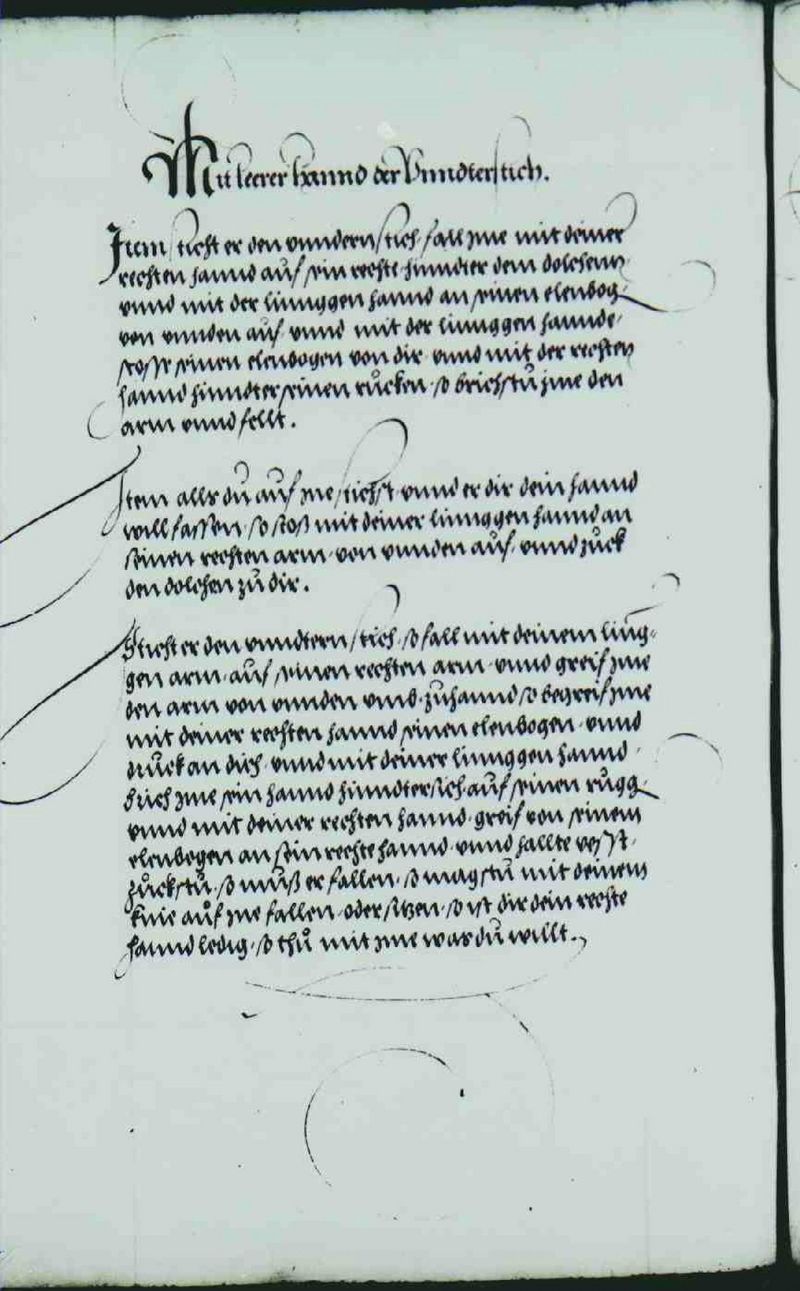 Mit leerer hannd der Vnndterstich.
Item sticht er den vnndern stich fall jme mit deiner
rechten hannd auf sein rechte hinndter dem dolchenn
vnnd mit der linnggen hannd an seinen elenbog
von vnnden auf vnnd mit der linnggen hannde
stosse seinen elenbogen von dir vnnd mit der rechten
hannd hinndter seinen růcken so brichstu jme den
arm vnnd fellt.
Item alls du auf jne stichst vnnd er dir dein hannd
will fassen so stoß mit deiner linnggen hannd an
seinen rechten arm von vnnden auf vnnd zuck
den dolchen zu dir.
Sticht er den vnndtern stich so fall mit deinem ling-
gen arm auf seinen rechten arm vnnd greif jme
den arm von vnnden vmb zuhannd so begreif jme
mit deiner rechten hannd seinen elenbogen vnnd
druck an dich vnnd mit deiner linnggen hannd
brich jme sein hannd hinndtersich auf seinen rugg
vnnd mit deiner rechten hannd greif von seinem
elenbogen an sein rechte hannd vnnd hallte vesst
zůckstu so muß er fallen so magstu mit deinem
knie auf jne fallen oder sitzen so ist dir dein rechte
hannd ledig so thů mit jme was du willt.